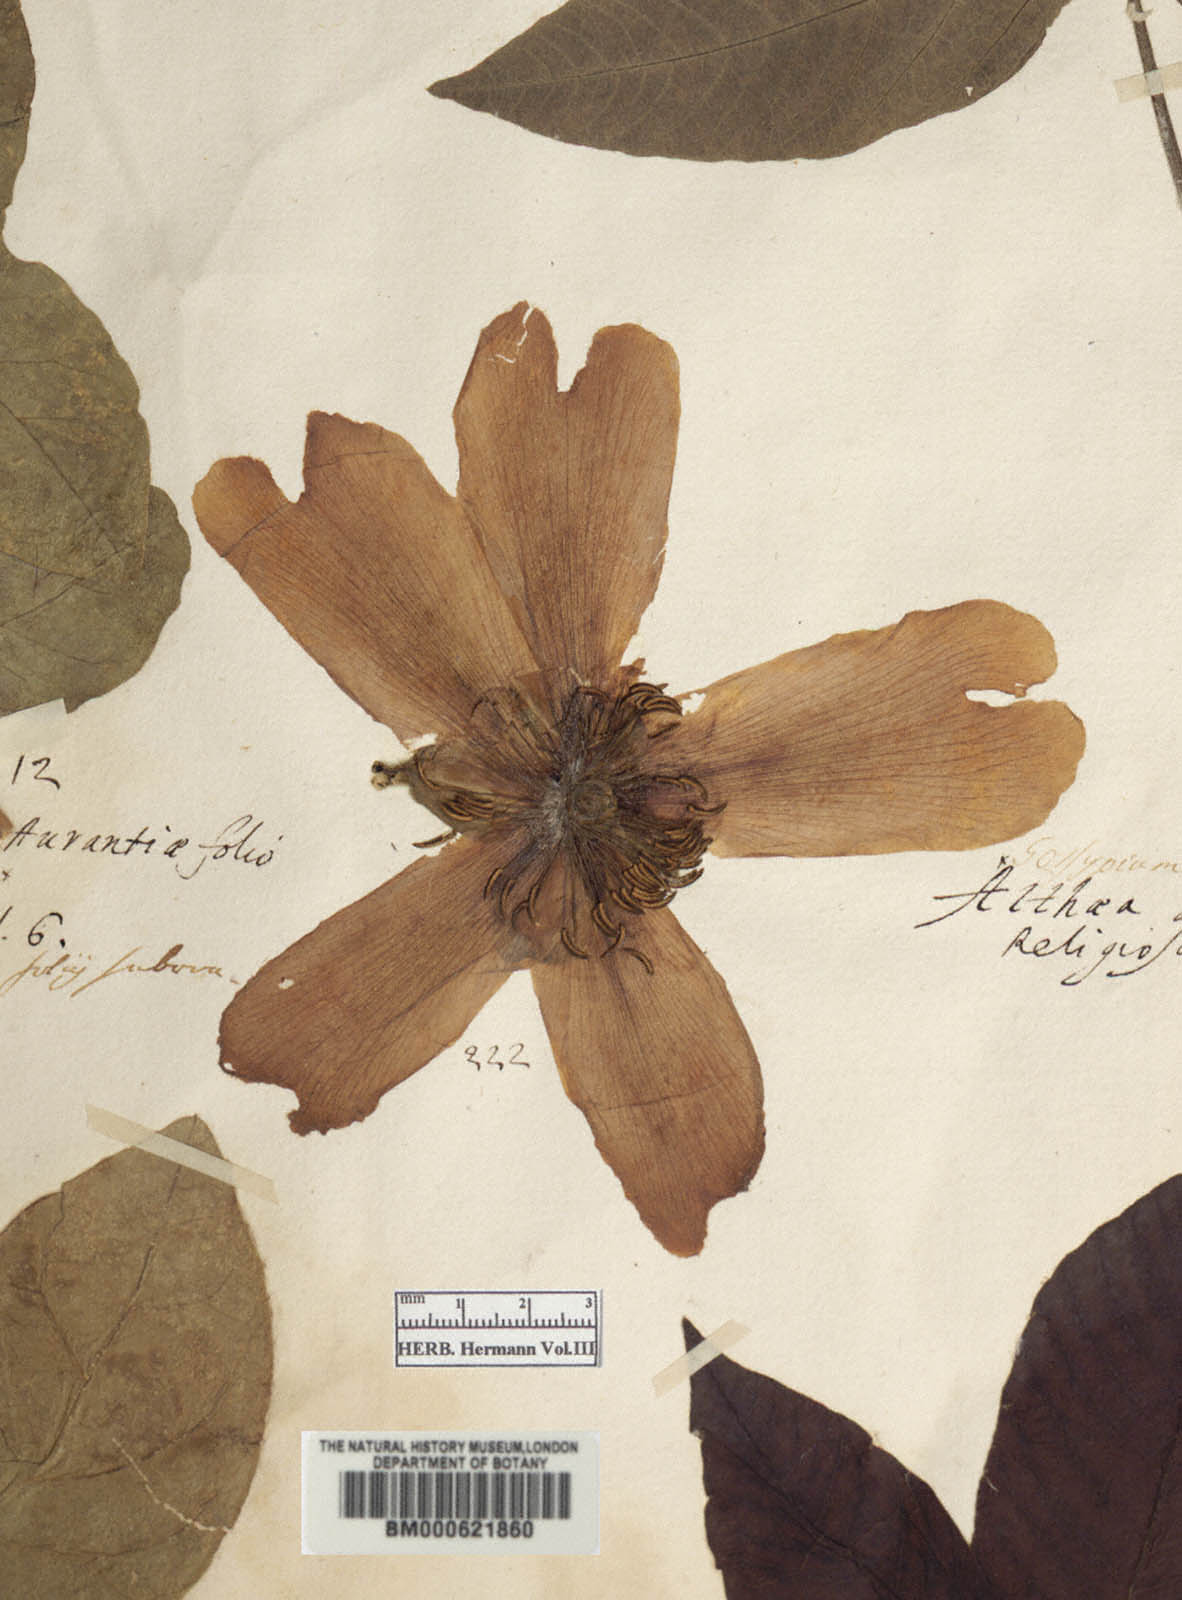 12
Aurantiæ folio
6.
Gossypium
Althæa
Religios
222
mm 1 2 3
HERB. Hermann Vol.III
THE NATURAL HISTORY MUSEUM,LONDON
DEPARTMENT OF BOTANY
BM000621860